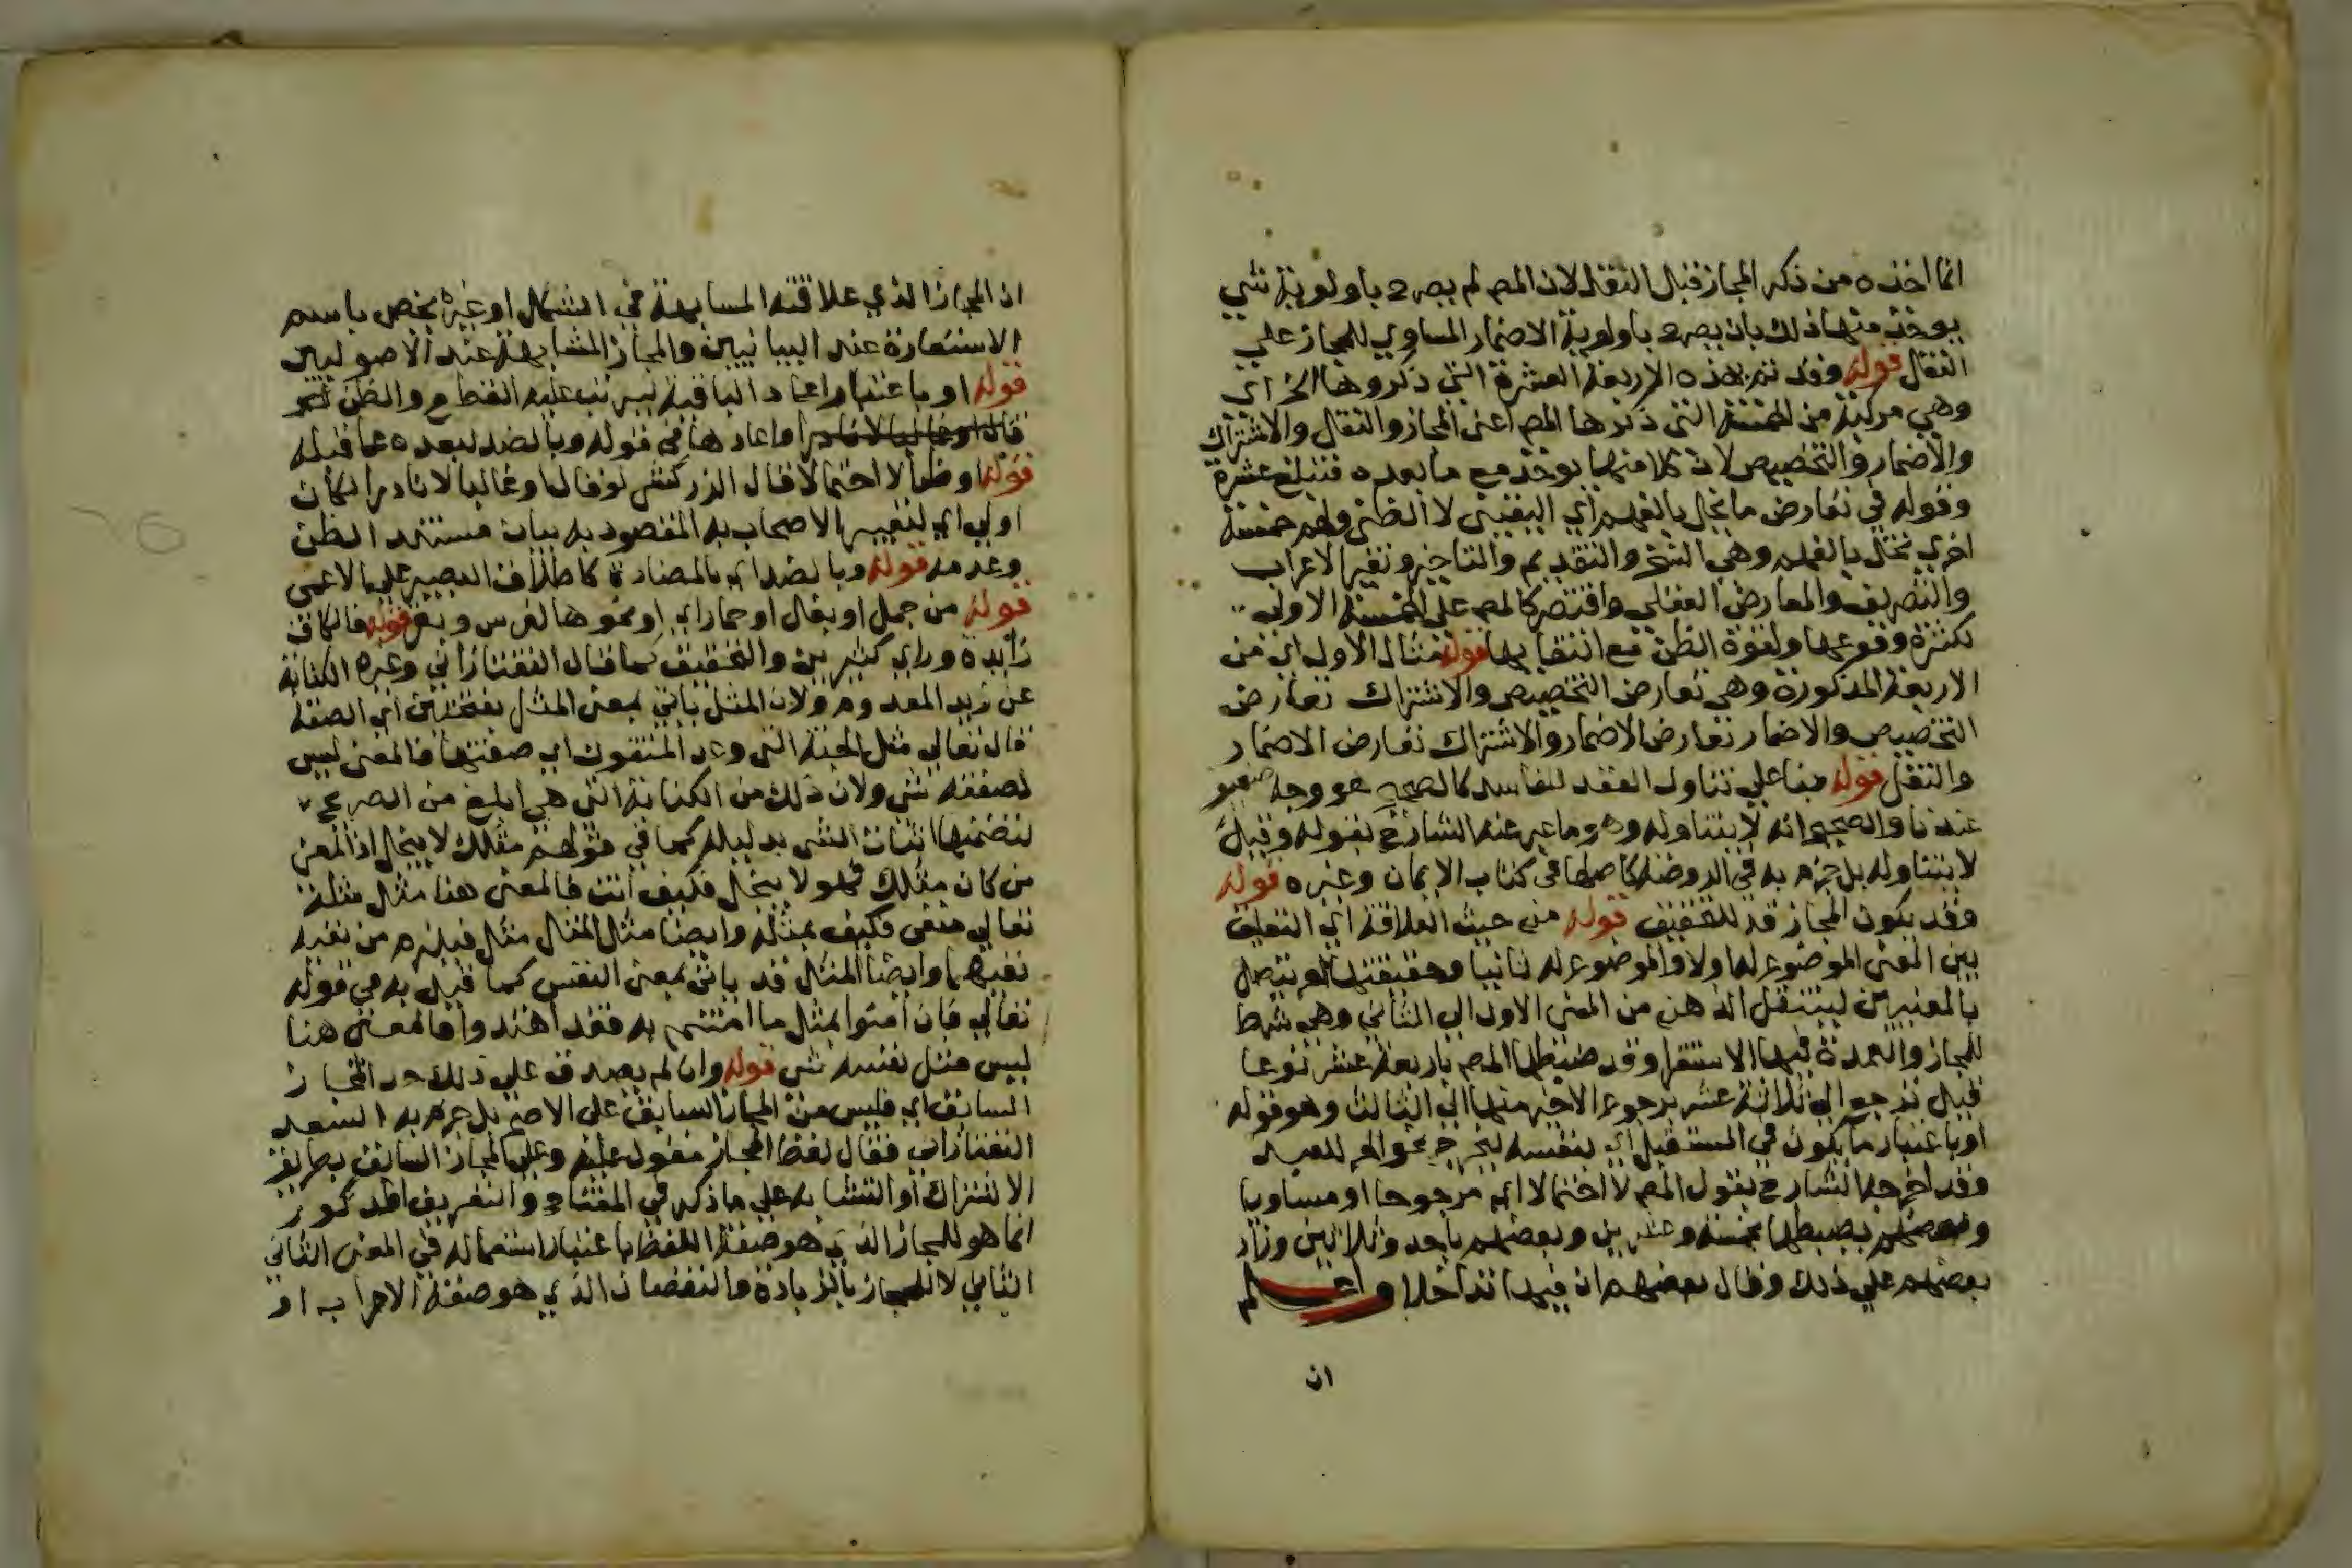 انما اخذه من ذكر المجاز قبل النقل لان المص لم يصرح باولوية شي
يوخذ منها ذلك بان يصرح باولوية الاضمار المساوي للمجاز علي
النقل قوله وقد تم بهذه الاربعة العشرة التي ذكروها الخ اي
وهي مركبة من الخمسة التي ذكرها المص اعني المجاز والنقل والاشتراك
والاضمار والتخصيص لان كلا منها يوخذ مع ما بعده فتبلغ عشرة
وقوله في تعارض ما يخل بالفهم اي اليقيني لا الظني ولهم خمسة
اخري تخل بالفهم وهي النسخ والتقديم والتاخير وتغير الاعراب
والتصريف والمعارض العقلي واقتصر كالمص علي الخمسة الاولي
لكثرة وقوعها ولقوة الظن مع انتفايها قوله مثال الاول اي من
الاربعة المذكورة وهي تعارض التخصيص والاشتراك تعارض
التخصيص والاضمار تعارض الاضمار والاشتراك تعارض الاضمار
والنقل قوله مبنا علي تناول العقد للفاسد كالصحيح هو وجه ضعيف
عندنا والصحيح انه لا يتناوله وهو ما عبر عنه الشارح بقوله وقيل
لا يتناوله بل جزم به في الروضة كاصلها في كتاب الايمان وغيره قوله
وقد يكون المجاز قد للتحقيق قوله من حيث العلاقة اي التعلق
بين المعني الموضوع له اولا والموضوع له ثانيا وحقيقتها امر يتصل
بالمعنيين لينتقل الذهن من المعني الاول الي الثاني وهي شرط
للمجاز والعمدة فيها الاستقرا وقد ضبطها المص باربعة عشر نوعا
قيل ترجع الي ثلاثة عشر برجوع الاخير منها الي الثالث وهو قوله
او باعتبار ما يكون في المستقبل اي بنفسه ليخرج نحو الحر للعبد
وقد اخرجه الشارح بقول المص لا احتمالا اي مرجوحا او مساويا
وبعضهم يضبطها بخمسة وعشرين وبعضهم باحد وثلاثين وزاد
بعضهم علي ذلك وقال بعضهم ان فيها تداخلا واعلم
ان
ان المجاز الذي علاقته المشابهة في الشكل او غيره يخص باسم
الاستعارة عند البيانيين والمجاز المشابهة عند الاصوليين
قوله او باعتبار اعاد الباقية ليرتب عليه القطع والظن
قال او غالبا لا نادرا واعادها في قوله وبالضد لبعده عما قبله
قوله او ظنا لا احتمالا قال الزركشي لو قال او غالبا لا نادرا لكان
اولي اي لتغيير الاصحاب به المقصود به بيان مستند الظن
وعدمه قوله وبالضد اي بالمضادة كاطلاق البصير علي الاعمي
قوله من جمل او بغل او حمار اي او نحوها لفرس وبقر قوله فالكاف
زايدة وراي كثيرين والتحقيق كما قال التفتازاني وغيره الكناية
عن زيد المعدوم ولان المثل ياتي بمعني المثل بفتحتين اي الصفة
قال تعالي مثل الجنة التي وعد المتقون اي صفتها فالمعني ليس
لصفته شي ولان ذلك من الكناية التي هي ابلغ من الصريح
لتضمنها اثبات الشي بدليله كما في قولهم مثلك لا يبخل اذ المعني
من كان مثلك فهو لا يبخل فكيف انت فالمعني هنا مثل مثله
تعالي منفي فكيف بمثله وايضا مثل المثل مثل فيلزم من نفيه
نفيهما وايضا المثل قد ياتي بمعني النفس كما قيل به في قوله
تعالي فان امنوا بمثل ما امنتم به فقد اهتدوا فالمعني هنا
ليس مثل نفسه شي قوله وان لم يصدق علي ذلك حد المجاز
السابق اي فليس من المجاز السابق علي الاصح بل جزم به السعد
التفتازاني فقال لفظ المجاز مقول عليه وعلي المجاز السابق بطريق
الاشتراك او التشابه علي ما ذكر في المفتاح والتعريف المذكور
انما هو للمجاز الذي هو صفة اللفظ باعتبار استعماله في المعني الثاني
الثاني لا للمجاز بالزيادة والنقصان الذي هو صفة الاعراب او